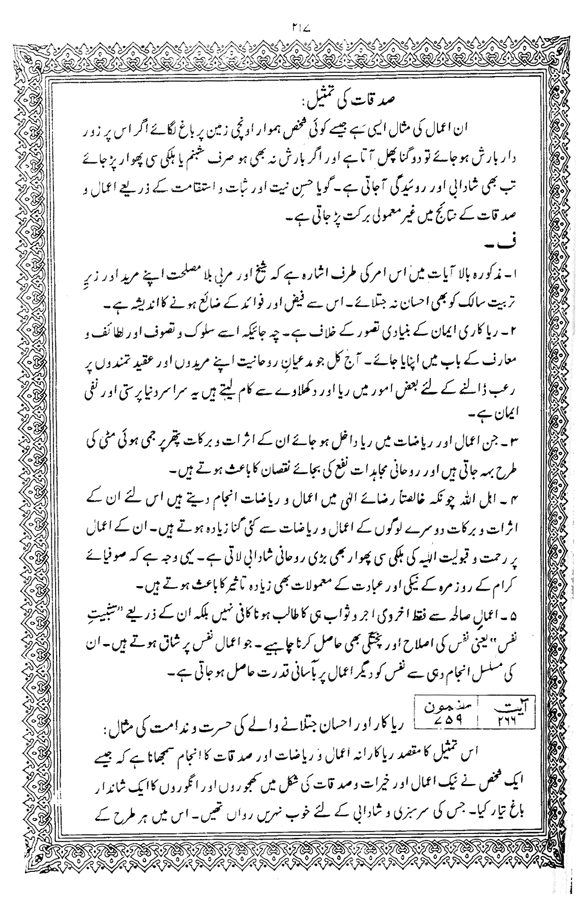 ۲۱۷
صدقات کی تمثیل:
ان اعمال کی مثال ایسی ہے جیسے کوئی شخص ہموار اونچی زمین پر باغ لگائے اگر اس پر زور
دار بارش ہو جائے تو دوگنا پھل آتا ہے اور اگر بارش نہ بھی ہو صرف شبنم یا ہلکی سی پھوار پڑ جائے
تب بھی شادابی اور روئیدگی آجاتی ہے۔ گویا حسن نیت اور ثبات و استقامت کے ذریعے اعمال و
صدقات کے نتائج میں غیر معمولی برکت پڑ جاتی ہے۔
ف۔
۱۔ مذکورہ بالا آیات میں اس امر کی طرف اشارہ ہے کہ شیخ اور مربی بلا مصلحت اپنے مرید اور زیرِ
تربیت سالک کو بھی احسان نہ جتلائے۔ اس سے فیض اور فوائد کے ضائع ہونے کا اندیشہ ہے۔
۲۔ ریا کاری ایمان کے بنیادی تصور کے خلاف ہے۔ چہ جائیکہ اسے سلوک و تصوف اور لطائف و
معارف کے باب میں اپنایا جائے۔ آج کل جو مدعیانِ روحانیت اپنے مریدوں اور عقیدتمندوں پر
رعب ڈالنے کے لئے بعض امور میں ریا اور دکھلاوے سے کام لیتے ہیں یہ سراسر دنیا پرستی اور نفی
ایمان ہے۔
۳۔ جن اعمال اور ریاضات میں ریا داخل ہو جائے ان کے اثرات و برکات پتھر پر جمی ہوئی مٹی کی
طرح بہہ جاتی ہیں اور روحانی مجاہدات نفع کی بجائے نقصان کا باعث ہوتے ہیں۔
۴۔ اہل اللہ چونکہ خالصتاً رضائے الٰہی میں اعمال و ریاضات انجام دیتے ہیں اس لئے ان کے
اثرات و برکات دوسرے لوگوں کے اعمال و ریاضات سے کئی گنا زیادہ ہوتے ہیں۔ ان کے اعمال
پر رحمت و قبولیت الٰلیہ کی ہلکی سی پھوار بھی بڑی روحانی شادابی لاتی ہے۔ یہی وجہ ہے کہ صوفیائے
کرام کے روز مرہ کے نیکی اور عبادت کے معمولات بھی زیادہ تاثیر کا باعث ہوتے ہیں۔
۵۔ اعمالِ صالحہ سے فقط اخروی اجر و ثواب ہی کا طالب ہونا کافی نہیں بلکہ ان کے ذریعے "تثبیتِ
نفس" یعنی نفس کی اصلاح اور پختگی بھی حاصل کرنا چاہیے۔ جو اعمال نفس پر شاق ہوتے ہیں۔ ان
کی مسلسل انجام دہی سے نفس کو دیگر اعمال پر بآسانی قدرت حاصل ہو جاتی ہے۔
آیت ۲۶۶ مضمون ۷۵۹ ریاکار اور احسان جتلانے والے کی حسرت و ندامت کی مثال:
اس تمثیل کا مقصد ریاکارانہ اعمال و ریاضات اور صدقات کا انجام سمجھانا ہے کہ جیسے
ایک شخص نے نیک اعمال اور خیرات و صدقات کی شکل میں کھجوروں اور انگوروں کا ایک شاندار
باغ تیار کیا۔ جس کی سرسبزی و شادابی کے لئے خوب نہریں رواں تھیں۔ اس میں ہر طرح کے